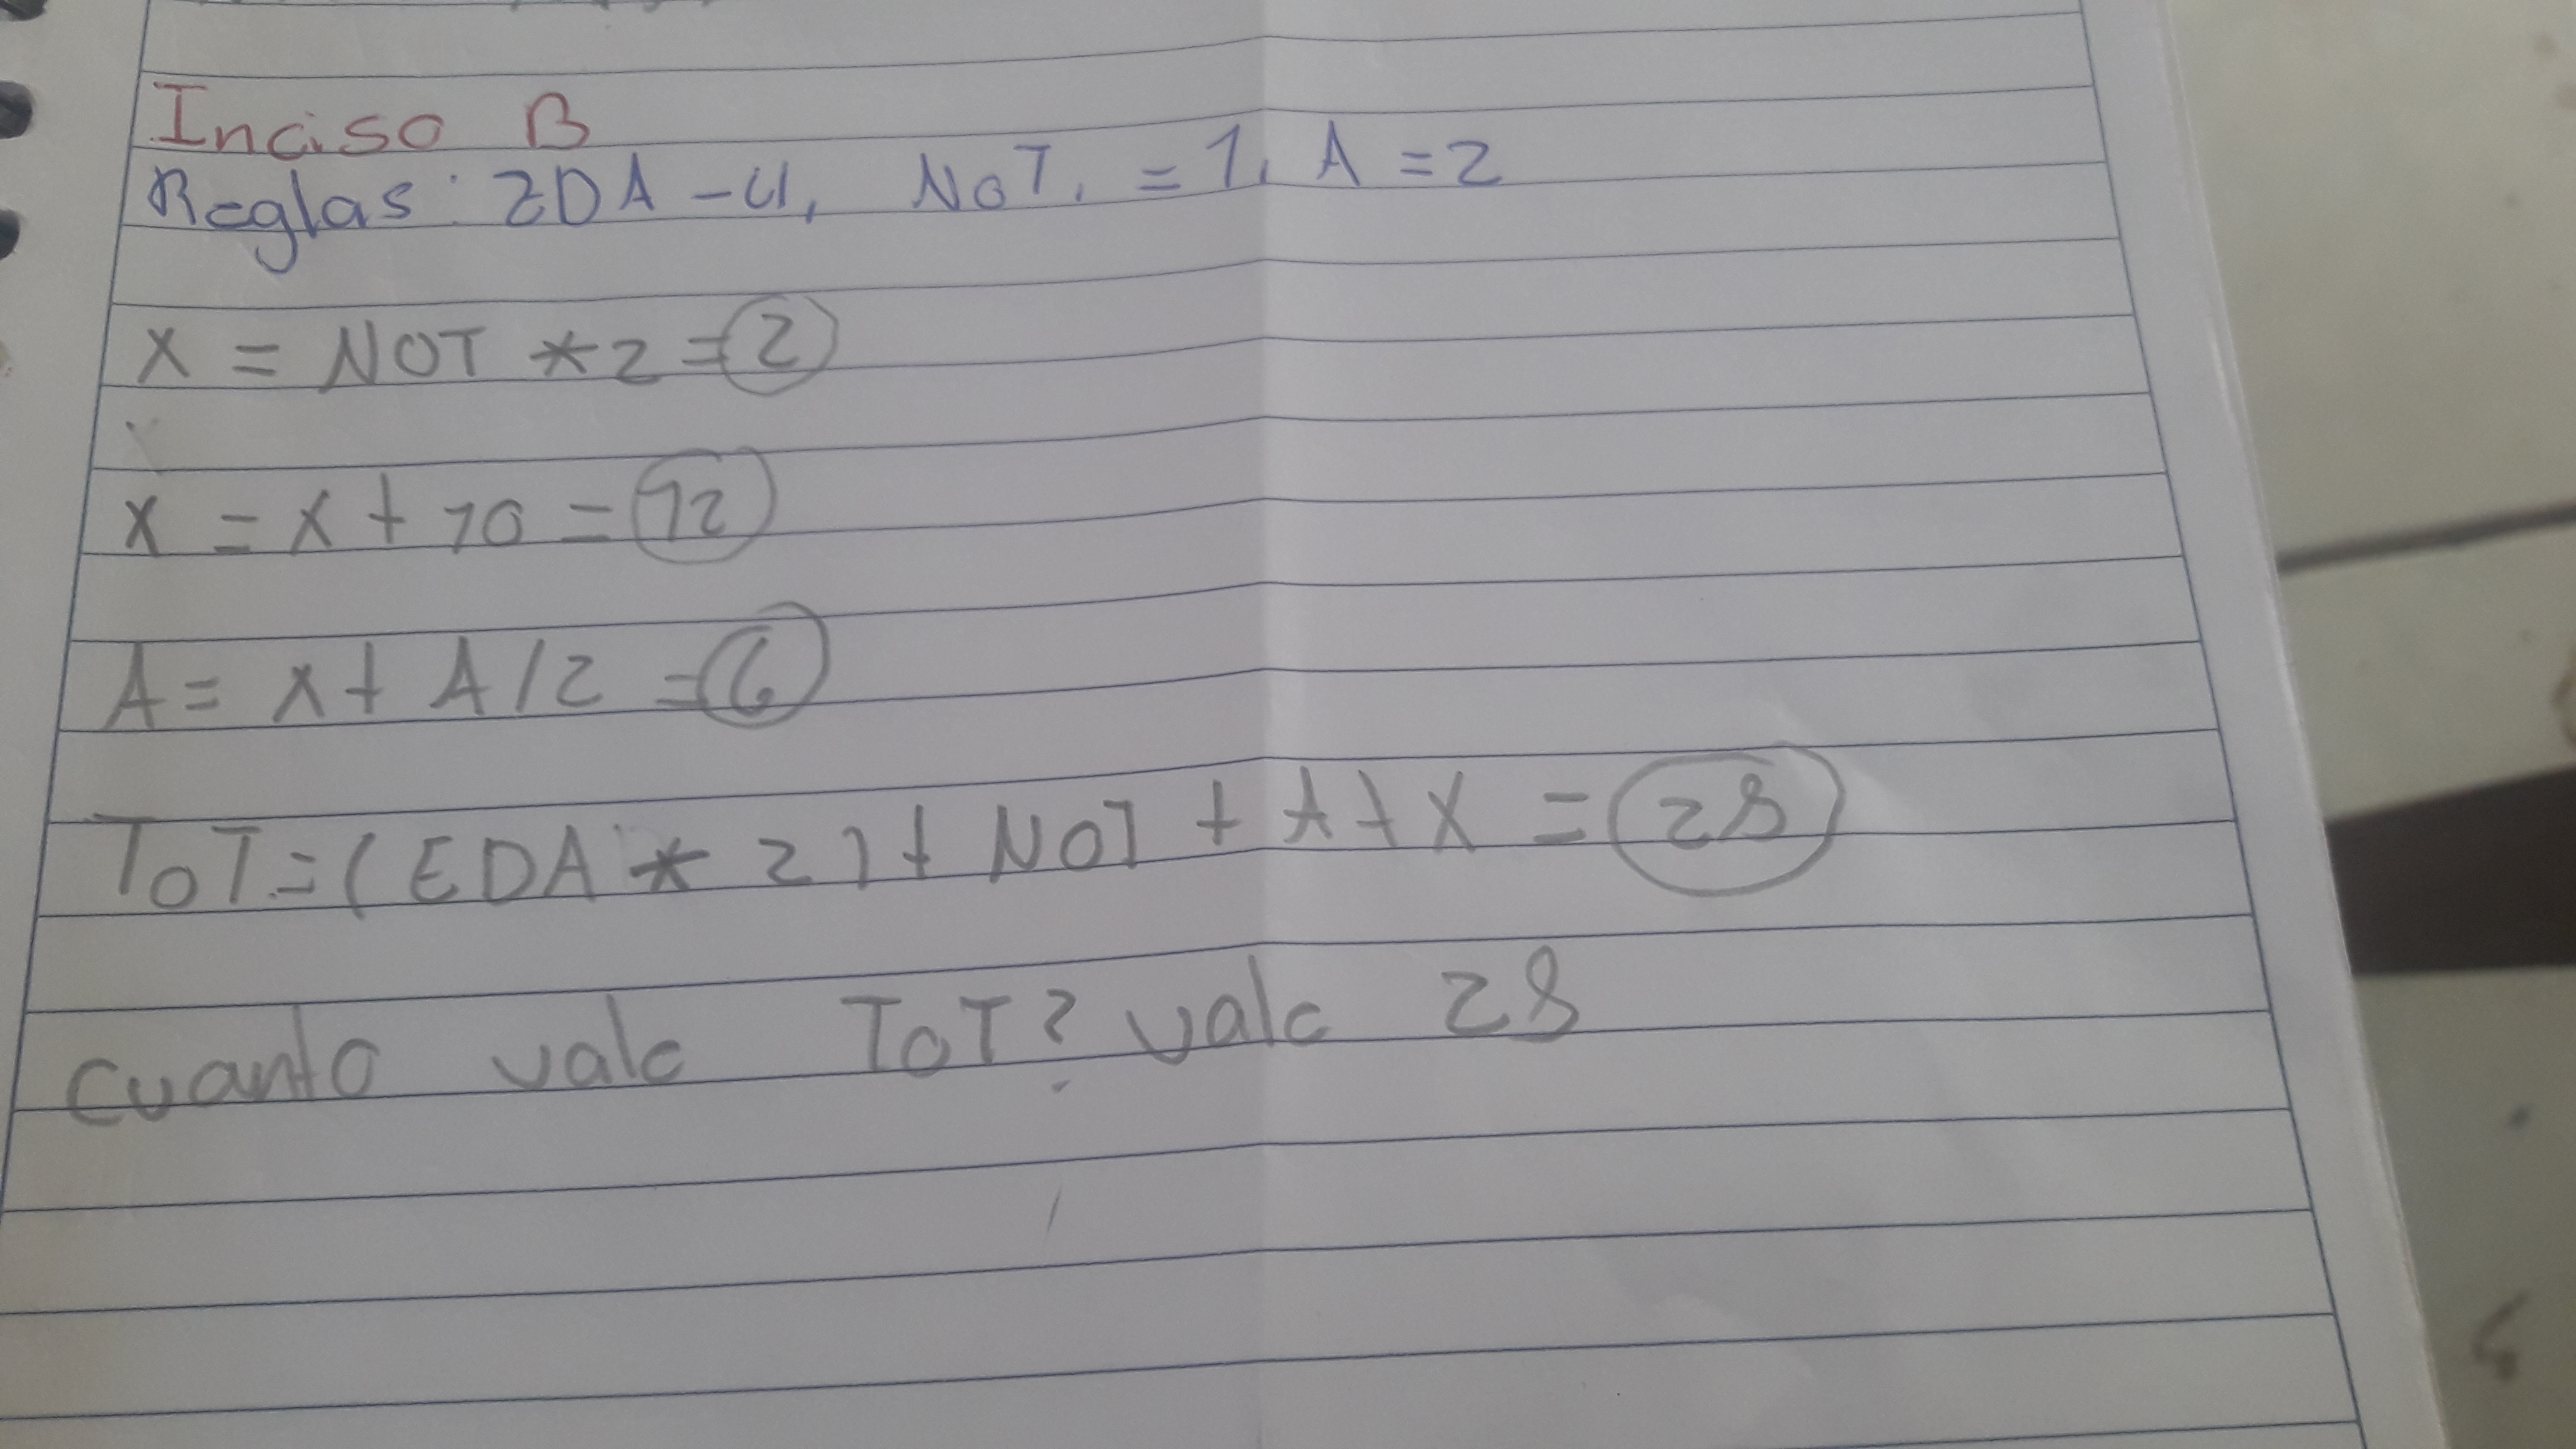 Inciso B
Reglas: EDA - 4, NOT. = 1, A = 2
X = NOT * 2 = 2
X = X + 10 = 12
A = X + A / 2 = 6
TOT = (EDA * 2) + NOT + A + X = 28
cuanto vale TOT? vale 28